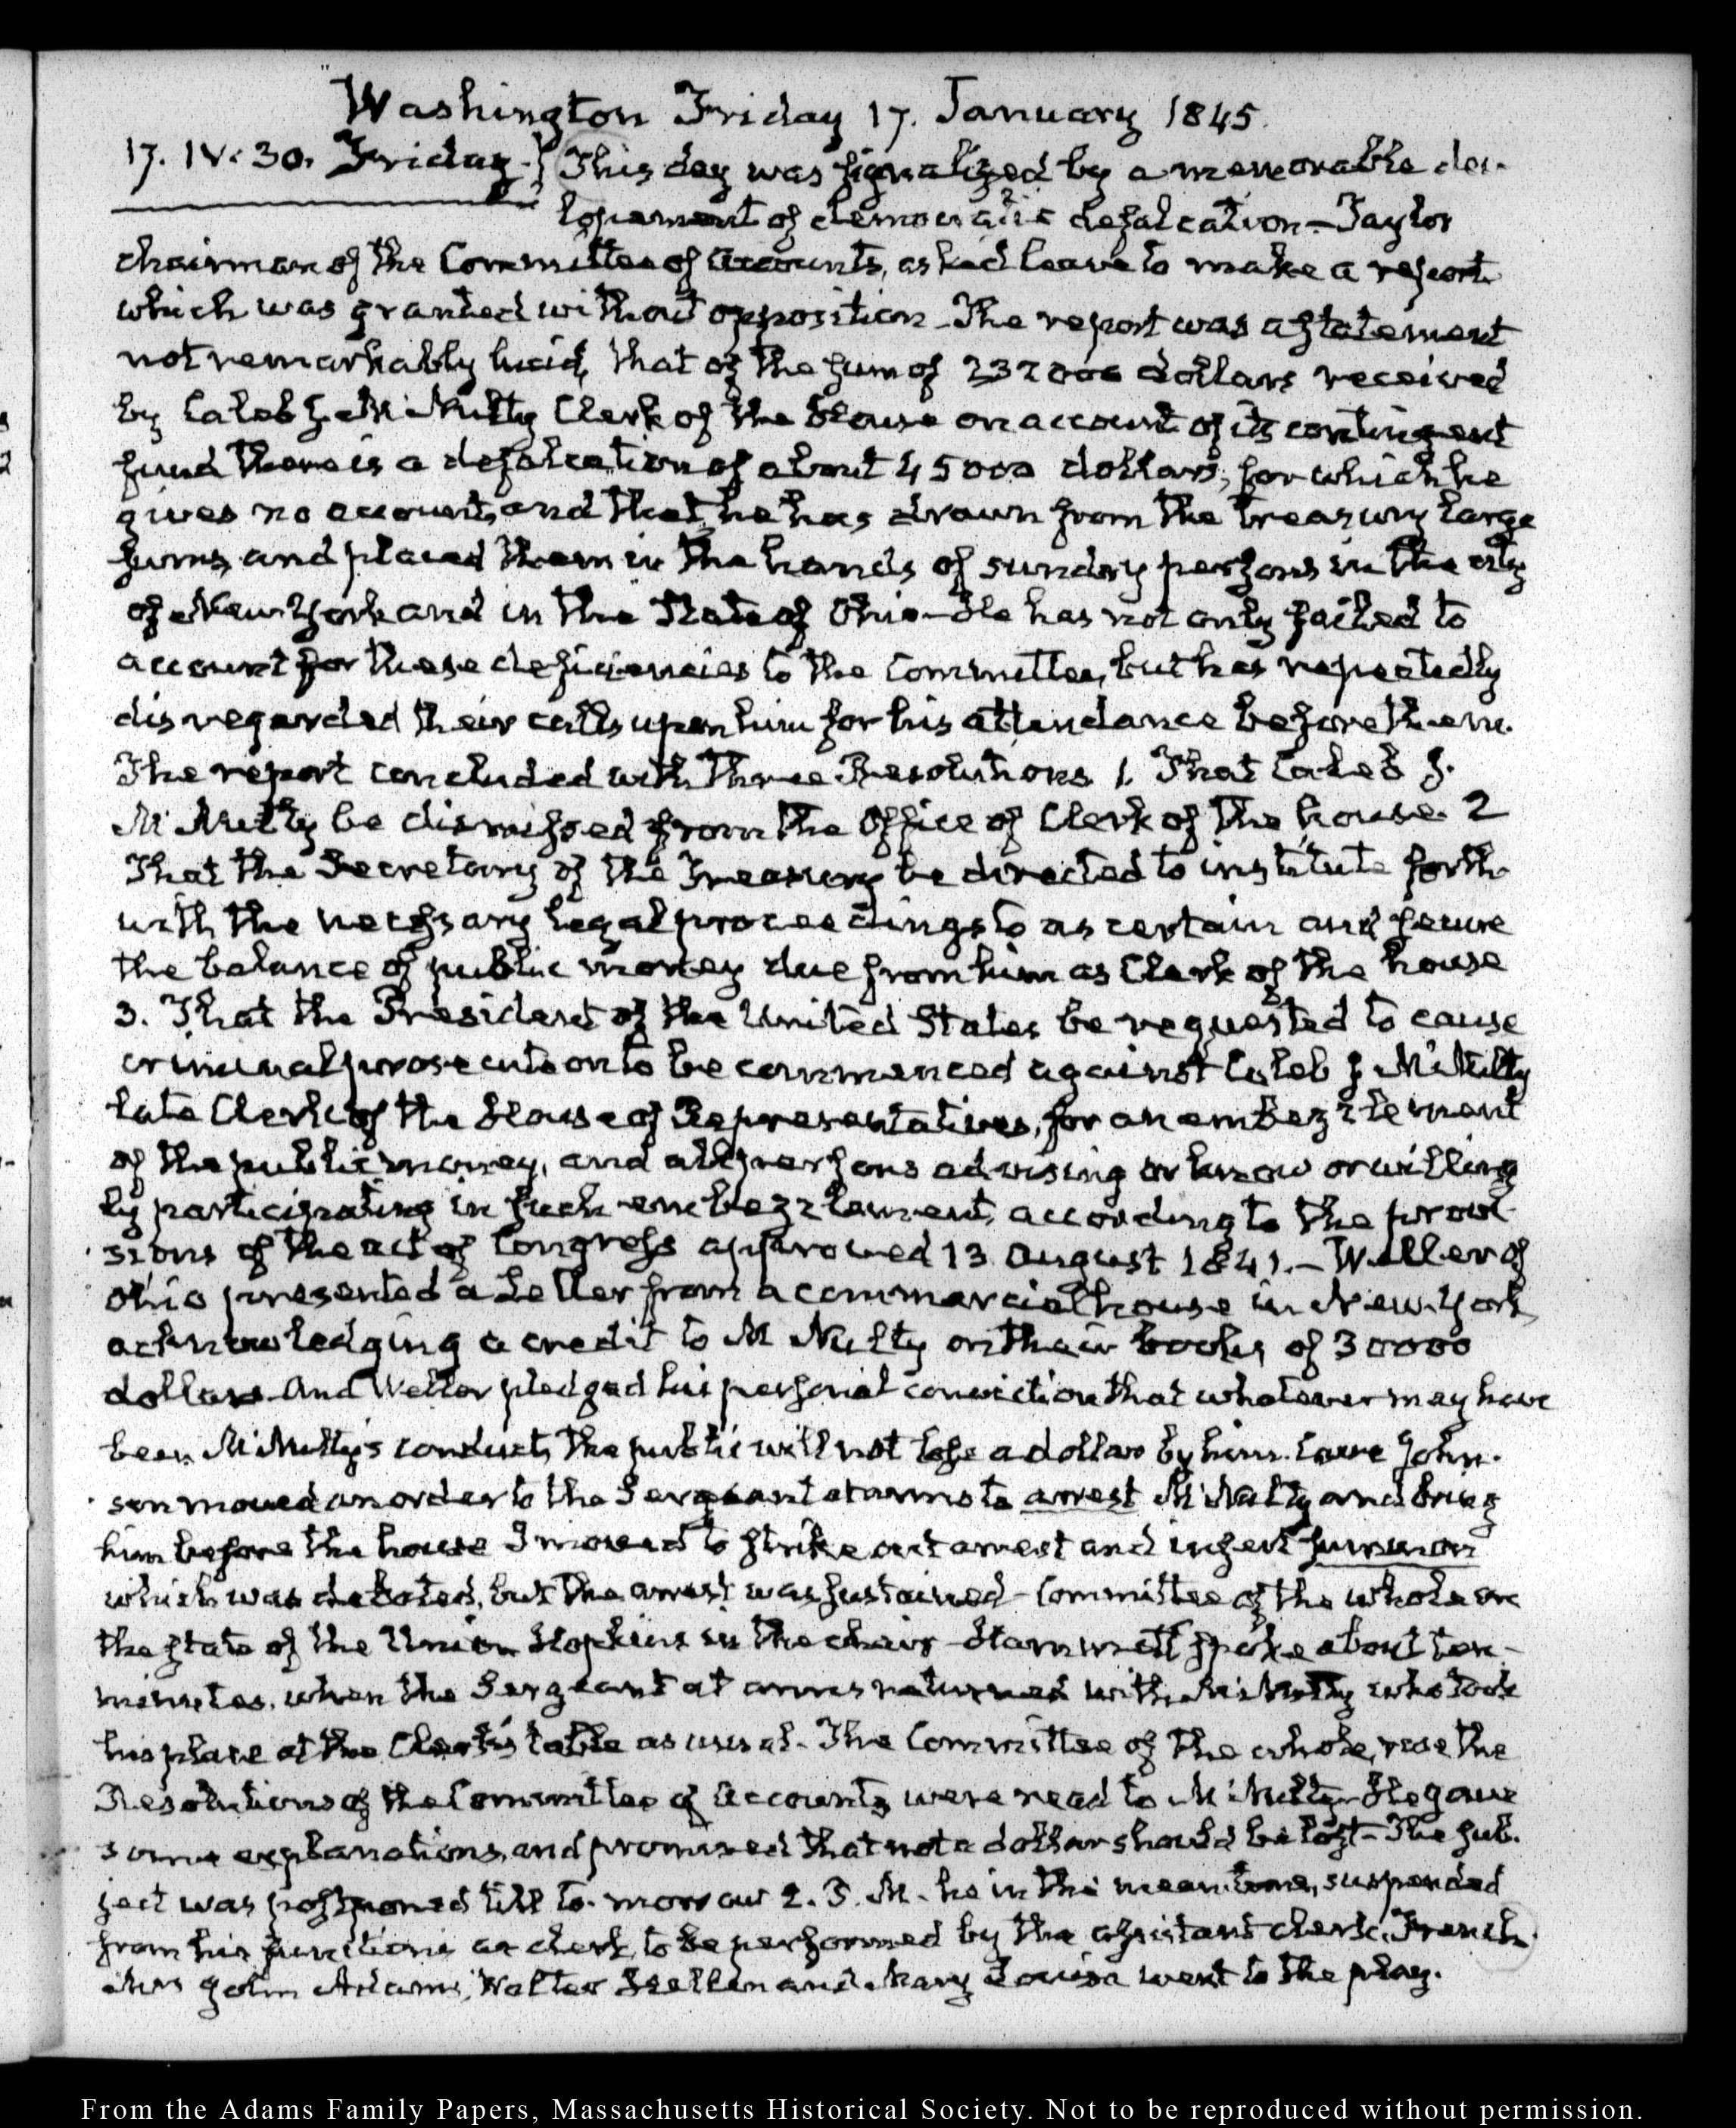 Washington Friday 17. January 1845.
17. IV. 30. Friday.} This day was signalized by a memorable deve-
lopement of democratic defalcation – Taylor
chairman of the Committee of Accounts, asked leave to make a report
which was granted without opposition – The report was a statement
not remarkably lucid, that of the sum of 232000 dollars received
by Caleb J. McNulty Clerk of the House on account of its contingent
fund there is a defalcation of about 45000 dollars, for which he
gives no account, and that he has drawn from the treasury large
sums, and placed them in the hands of sundry persons in the city
of New York and in the State of Ohio – He has not only failed to
account for these deficiencies to the Committee, but has repeatedly
disregarded their calls upon him for his attendance before them.
The report concluded with three Resolutions 1. That Caleb J.
McNulty be dismissed from the Office of Clerk of the house. 2
That the Secretary of the Treasury be directed to institute forth-
with the necessary legal proceedings to ascertain and secure
the balance of public money due from him as Clerk of the house
3. That the President of the United States be requested to cause
criminal prosecution to be commenced against Caleb J McNulty
late Clerk of the House of Representatives, for an embezzlement
of the public money, and all persons advising or know or willing
ly participating in such embezzlement, according to the provi-
sions of the act of Congress approved 13 August 1841. – Weller of
Ohio presented a Letter from a commercial house in New-York,
acknowledging a credit to McNulty on their books of 30000
dollars. And Weller pledged his personal conviction that whatever may have
been McNulty's conduct, the public will not lose a dollar by him. Cave John-
son moved an order to the Sergeant at arms to arrest McNulty and bring
him before the house I moved to strike out arrest and insert summon
which was debated, but the arrest was sustained – Committee of the whole on
the state of the Union Hopkins in the chair – Hammett spoke about ten
minutes. when the Sergeant at arms returned with McNulty who took
his place at the Clerk's table as usual. The Committee of the whole, rose the
Resolutions of the Committee of Accounts were read to McNulty – He gave
some explanations, and promised that not a dollar should be lost – The sub-
ject was postponed till to-morrow 2. P. M. he in the mean time, suspended
from his functions as clerk, to be performed by the assistant clerk, French.
Mrs John Adams, Walter Hellen and Mary Louisa went to the play.
From the Adams Family Papers, Massachusetts Historical Society. Not to be reproduced without permission.